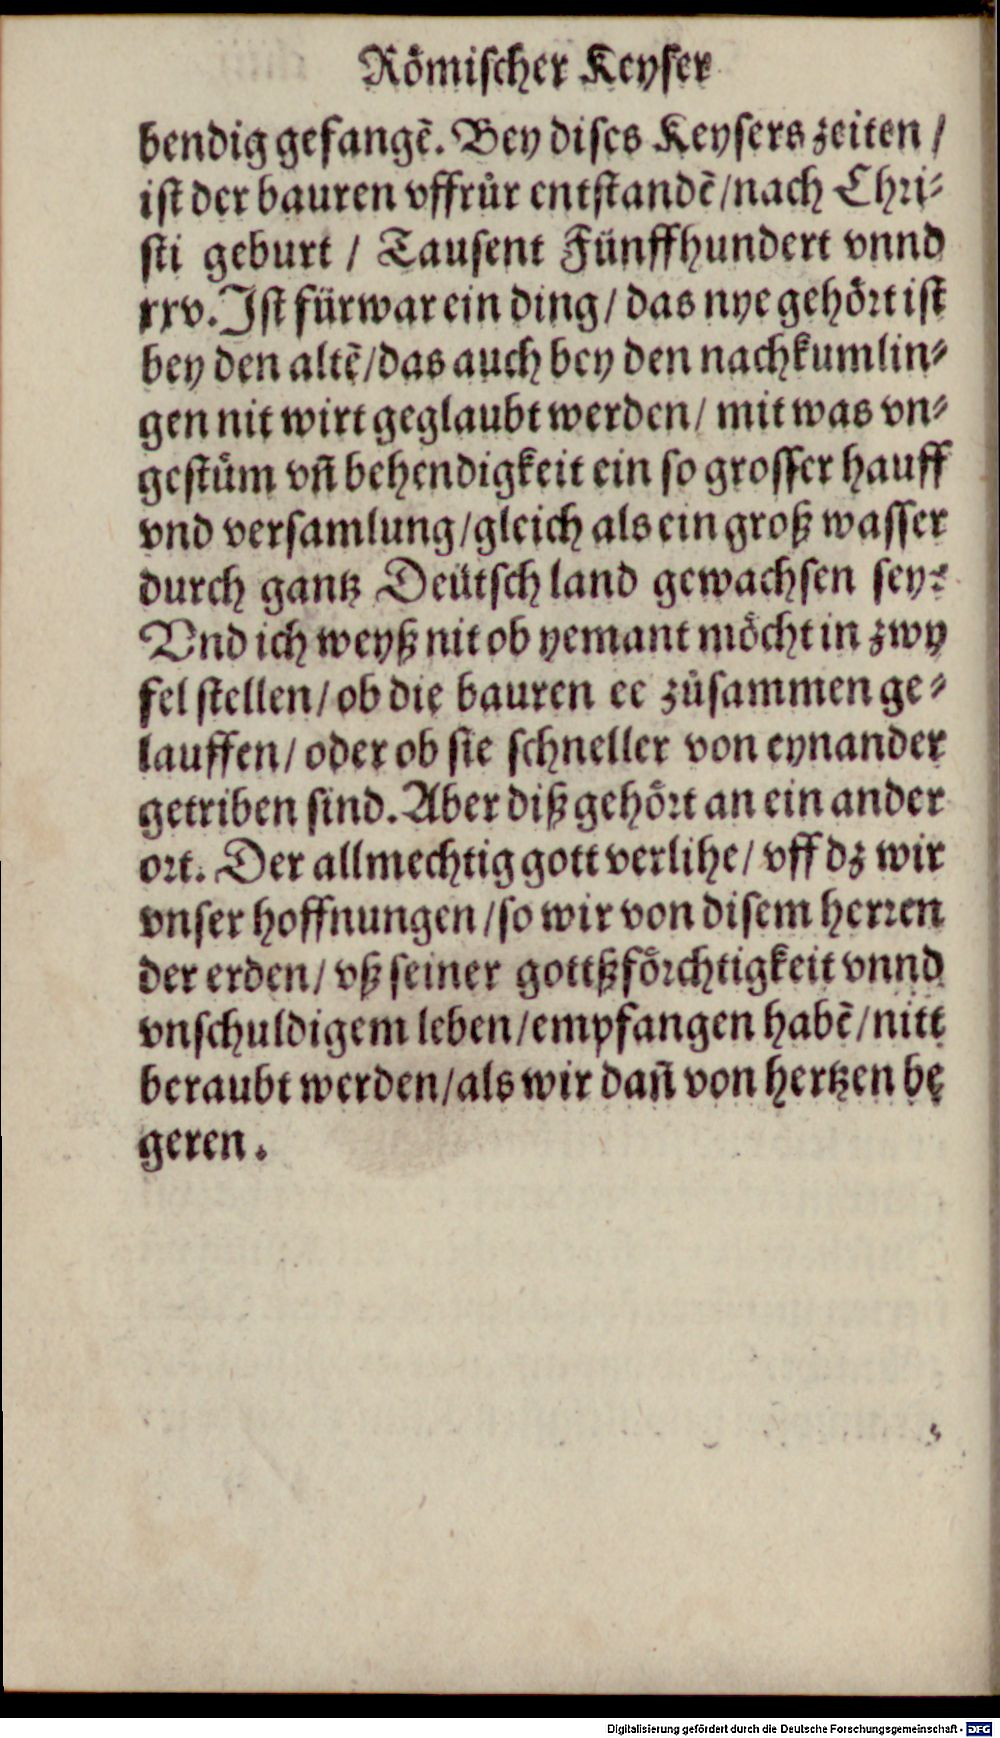 Roͤmischer Keyser
bendig gefangẽ. Bey dises Keysers zeiten /
ist der bauren vffruͤr entstandẽ / nach Chri⸗
sti geburt / Tausent Fünffhundert vnnd
xxv. Ist fürwar ein ding / das nye gehoͤrt ist
bey den altẽ / das auch bey den nachkumlin⸗
gen nit wirt geglaubt werden / mit was vn⸗
gestuͤm vñ behendigkeit ein so grosser hauff
vnd versamlung / gleich als ein groß wasser
durch gantz Deütsch land gewachsen sey?
Vnd ich weyß nit ob yemant moͤcht in zwy
fel stellen / ob die bauren ee zuͦsammen ge⸗
lauffen / oder ob sie schneller von eynander
getriben sind. Aber diß gehoͤrt an ein ander
ort. Der allmechtig gott verlihe / vff dz wir
vnser hoffnungen / so wir von disem herren
der erden / vß seiner gottßfoͤrchtigkeit vnnd
vnschuldigem leben / empfangen habẽ / nitt
beraubt werden / als wir dañ von hertzen be
geren.
Digitalisierung gefördert durch die Deutsche Forschungsgemeinschaft - DFG